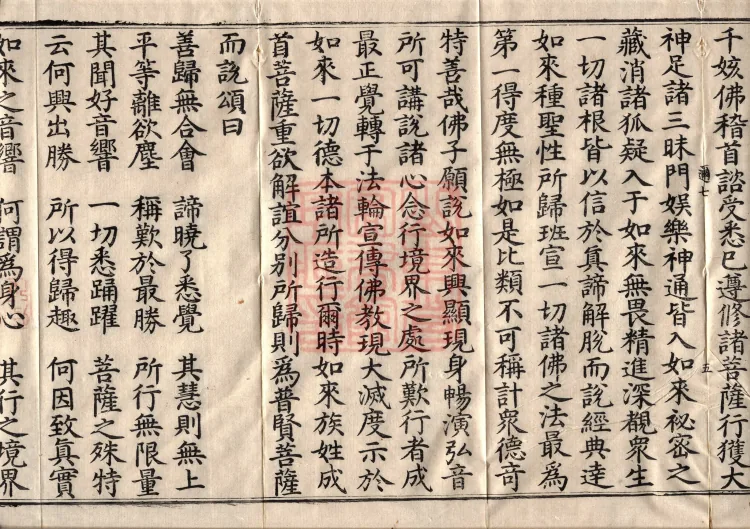 千姟佛稽首諮受悉已遵修諸菩薩行獲大
神足諸三昧門娯樂神通皆入如來祕密之
藏消諸狐疑入于如來無畏精進深覩衆生
一切諸根皆以信於真諦解脫而說經典逹
如來種聖性所歸班宣一切諸佛之法最爲
第一得度無極如是比類不可稱計衆德奇
特善哉佛子願說如來興顯現身暢演弘音
所可講說諸心念行境界之處所歎行者成
最正覺轉于法輪宣傳佛教現大滅度示於
如來一切德本諸所造行爾時如來族姓成
首菩薩重欲解誼分别所歸則爲普賢菩薩
而說頌曰
善歸無合會 諦曉了悉覺 其慧則無上
平等離欲塵 稱歎於最勝 所行無限量
其聞好音響 一切悉踊躍 菩薩之殊特
云何興出勝 所以得歸趣 何因致真實
如來之音響 何謂爲身心 其行之境界